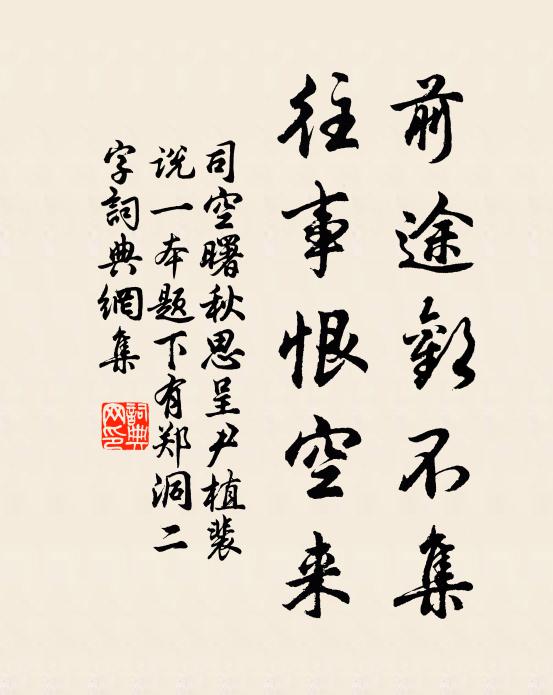 前途歡不集
往事恨空来
司空曙秋思呈尹植裴
说一本题下有郑洞二
字詞典網集
詞典网印